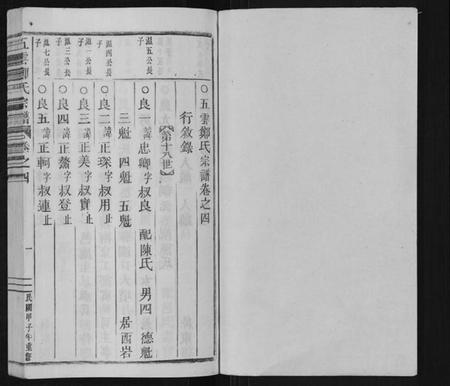 ○五雲鄭氏宗譜卷之四
行敘錄
【第十八世】
溫五公長子
○良一諱忠卿字叔良 配陳氏 男四 德魁
三魁 四魁 五魁 居西岩
溫四公長子
○良二諱正琛字叔用止
溫一公長子
○良三諱正美字叔實止
溫三公長子
○良四諱正鰲字叔登止
溫七公長子
○良五諱正軻字叔連止
五雲鄭氏宗譜 卷之四 一 民國甲子年重修